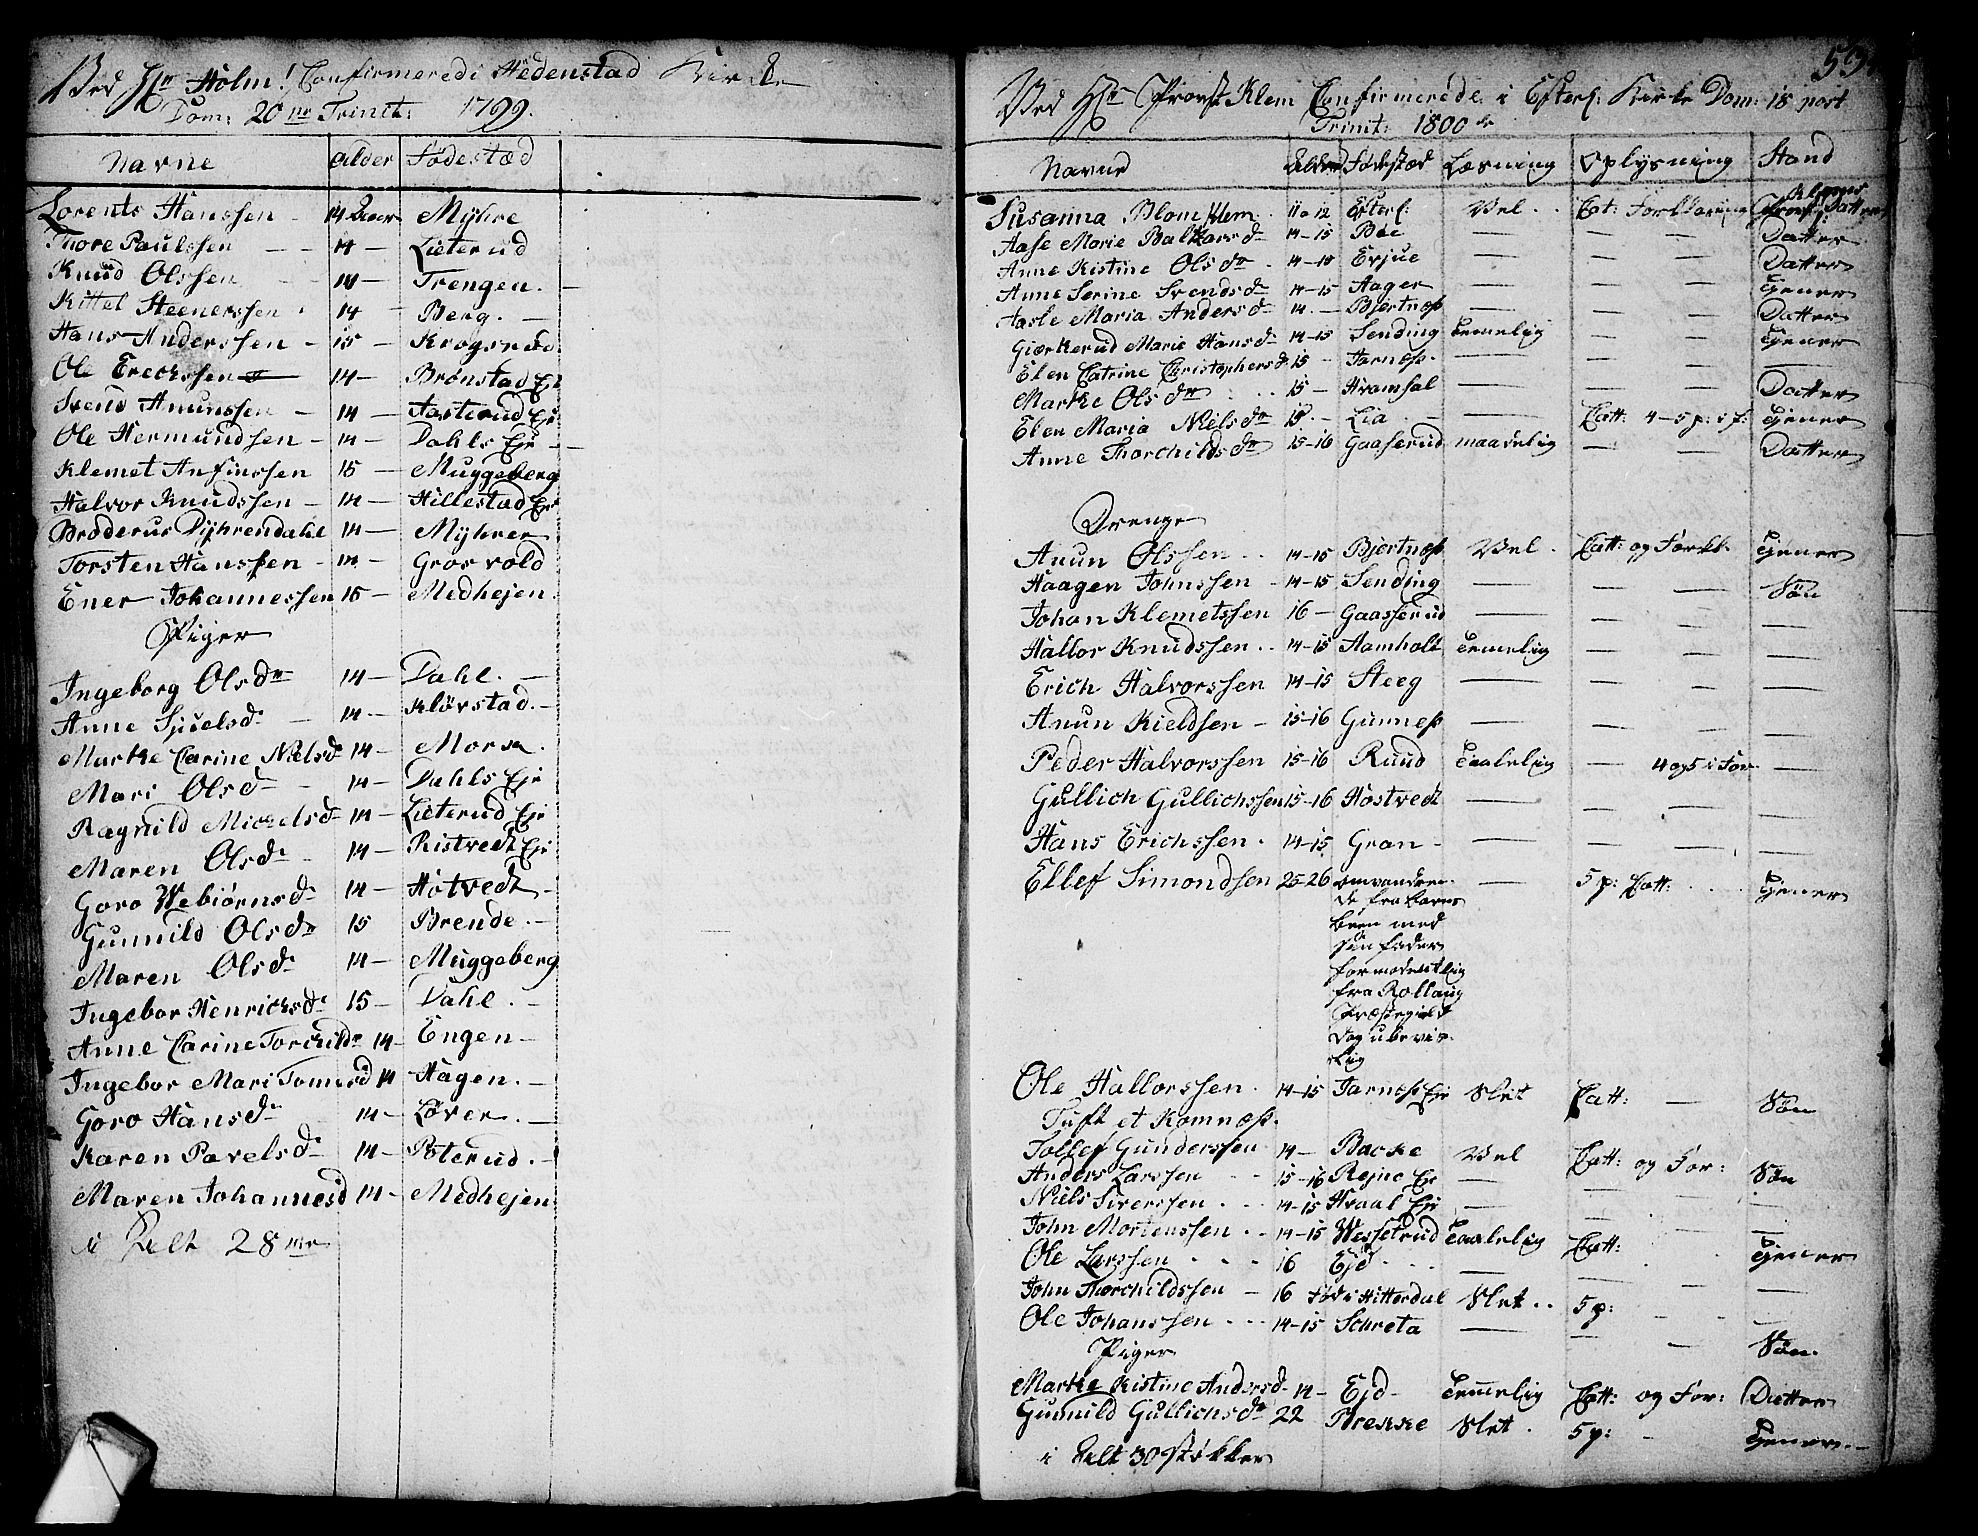 Ved Hr Holm! Confirmerede i Hedenstad Kirke
Dom: 20 no Trinit: 1799.
Navne alder Födestæd
Lorents Hanssen - 14 Myhre
Thore Paulssen - - 14 - Lieterud
Knud Olssen - - 14 - Trengen. -
Kittel Steenerssen . 14 - Berg. -
Hans Anderssen - 15 - Krogsrud
Ole Erickssen 14 - Brønstad Eje
Svend Anunssen - 14 - Aasterud Eje
Ole Hermundsen - 14 - Dahls Eje -
Klemet Anfinssen 15 - Muggeberg
Halvor Knudssen - 14 - Hillestad Eje
Broderus Dyhrendahl 14 - Myhrer
Torsten Hanssen - 14 - Grosvold
Ener Johannessen 15 - Medhejen.
Piger
Ingeborg Olsdr 14 - Dahl. -
Anne Sjuelsdr - 14 - Kløvstad. -
Marke Carine Nielsd 14 - Morsa.
Mari Olsdr - 14 - Dahls Eje
Ragnild Michelsdr 14 - Lieterud Eje
Maren Olsdr - 14 - Ristvedt Eje
Goro Webiørnsdr 14 - Hotvedt -
Gunnild Olsdr 15 Brende. -
Maren Olsdr 14 - Muggeberg
Ingebor Henrichsdr 15 - Dahl. -
Anne Carine Torchildr 14 - Engen -
Ingebor Mari Tomesd 14 Hagen. -
Goro Hansdr 14 - Løver. -
Karen Pavelsdr 14 - Poterud. -
Maren Johannesd 14 - Medhejen.
i Alt 28
Ved Hr Provst Klem Confirmerede i Efterl: Kirke Dom: 18 post
Trinit: 1800
Navne Alder Fødestæd Læsning Oplysning Stand
Susanna Blom Klem . 11 a 12 Efterl: Vel . . Cat: Forklaring Provst Klems Datter
Aase Marie Baltzarsdr 14-15 Bae - - - Datter
Anne Kistine Olsdr . 14-18 Erjue - - - Datter
Anne Serine Svendsdr 14-15 Aager - - - Gener
Aasle Maria Andersdr 14. - Bjertnæs - - - Datter
Giærkerud Marie Hansdr 14-15 Sending Temelig - - Gener
Elen Catrine Christophersdr 15 - Jarnæs. - - - -
Marke Olsdr . . . 15 - Hvamsal - - - Datter
Elen Maria Nielsdr 15. - Lia. - - Catt: 4-5 p: i f: Gener
Anne Thorchildsdr 15-16 Gaaserud maadelig - - Datter
Drenge
Anun Olssen . . 14-15 Bjertnæs Vel. Catt: og Forkl. Gener
Haagen Johnssen - 14-15 Sending - - - Søn
Johan Klemetssen 16 - Gaasserud - - - -
Hallor Knudssen . . 14-15 Hamholt Temelig - - -
Erich Halvorssen 14-15 Steeg - - - -
Anun Kieldsen - 15-16 Gunnes - - - -
Peder Halvorssen 15-16 Ruud Taalelig - 4 og 5 i For -
Gullich Gullichssen 15-16 Hostvedt - - - -
Hans Erichssen . 14-15 Gran - - - - -
Ellef Simondsen 25-26 omvandren- - 5 p: Catt: . . . Gener
de fra barns
been med
sin fader
formodentlig
fra Rollaug
Præstegield
dog ubevis-
lig
Ole Hallorssen . 14-15 Jarnæs Eje Slet Catt: - Søn
Tuft et Komnæs.
Tollef Gunderssen 14 - Backe Vel Catt: og For: Søn
Anders Larssen - - 15-16 Rejne Eje - - - -
Niels Siverssen . . . 14-15 Hvaal Eje - - - -
John Mortenssen . . 14-15 Wesselrud Taalelig Catt: . Gener
Ole Larssen . . . 16 Ejd . . . - - - -
John Thorchildssen - 16 Fød i Hitterdal Slet . . 5 p: - -
Ole Johanssen . . . 14-15 Schreta - - - Søn.
Piger
Marke Kistine Andersd. 14 - Ejd - Temelig Catt: og For: Datter
Gunnild Gullichsdr 22 Brekke Slet. 5 p: - Gener. -
i Alt 30 Støkker